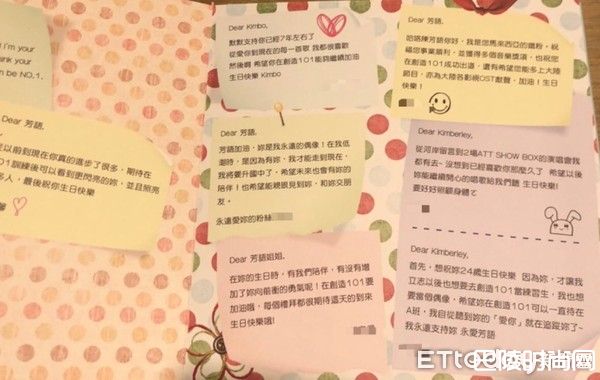 I'm your
think your
n be NO.1.
Dear 芳語,
以前到現在你真的進步了很多，期待在
101訓練後可以看到更閃亮的妳，並且照亮
多人，最後祝你生日快樂
Dear Kimbo,
默默支持你已經7年左右了
從愛你到現在的每一首歌 我都很喜歡
然後啊 希望你在創造101能夠繼續加油
生日快樂 Kimbo
Dear 芳語,
芳語加油，妳是我永遠的偶像！在我低
潮時，是因為有妳，我才能走到現在，
我將要升國中了，希望未來也會有妳的
陪伴！也希望能親眼見到妳，和妳交朋
友。
永遠愛妳的粉絲
Dear 芳語姐姐,
在妳的生日時，有我們陪伴，有沒有增
加了妳向前衝的勇氣呢！在創造101要
加油哦，每個禮拜都很期待這天的到來
生日快樂哦!
Dear 芳語,
哈咯陳芳語你好，我是您馬來西亞的鐵粉，祝
福您事業順利，並獲得多個音樂獎項，也祝您
在創造101成功出道，還有希望您能多上大陸
節目，亦為大陸各影視OST獻聲，加油！生日
快樂！
Dear Kimberley,
從河岸留言到2場ATT SHOW BOX的演唱會我
都有去，沒想到已經喜歡你那麼久了 希望以後
妳能繼續開心的唱歌給我們聽 生日快樂!
要好好照顧身體了
Dear Kimberley,
首先，想祝妳24歲生日快樂 因為妳，才讓我
立志以後也想要去創造101當練習生，我也想
要當個偶像，希望妳在創造101可以一直待在
A班，我自從聽到妳的「愛你」就在追蹤妳了~
我永遠支持妳 永愛芳語
ETtoday
巴陵时尚网